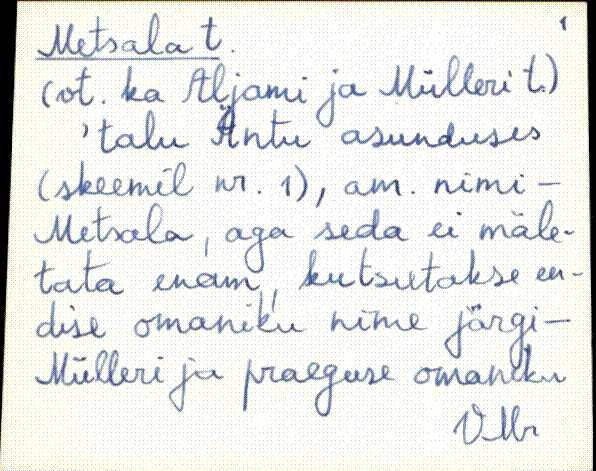 1
Metsala t.
(vt. ka Aljami ja Mülleri t.)
'talu Äntu asunduses
(skeemil nr. 1), am. nimi -
Metsala, aga seda ei mäle-
tata enam, kutsutakse en-
dise omaniku nime järgi -
Mülleri ja praeguse omaniku
VMr